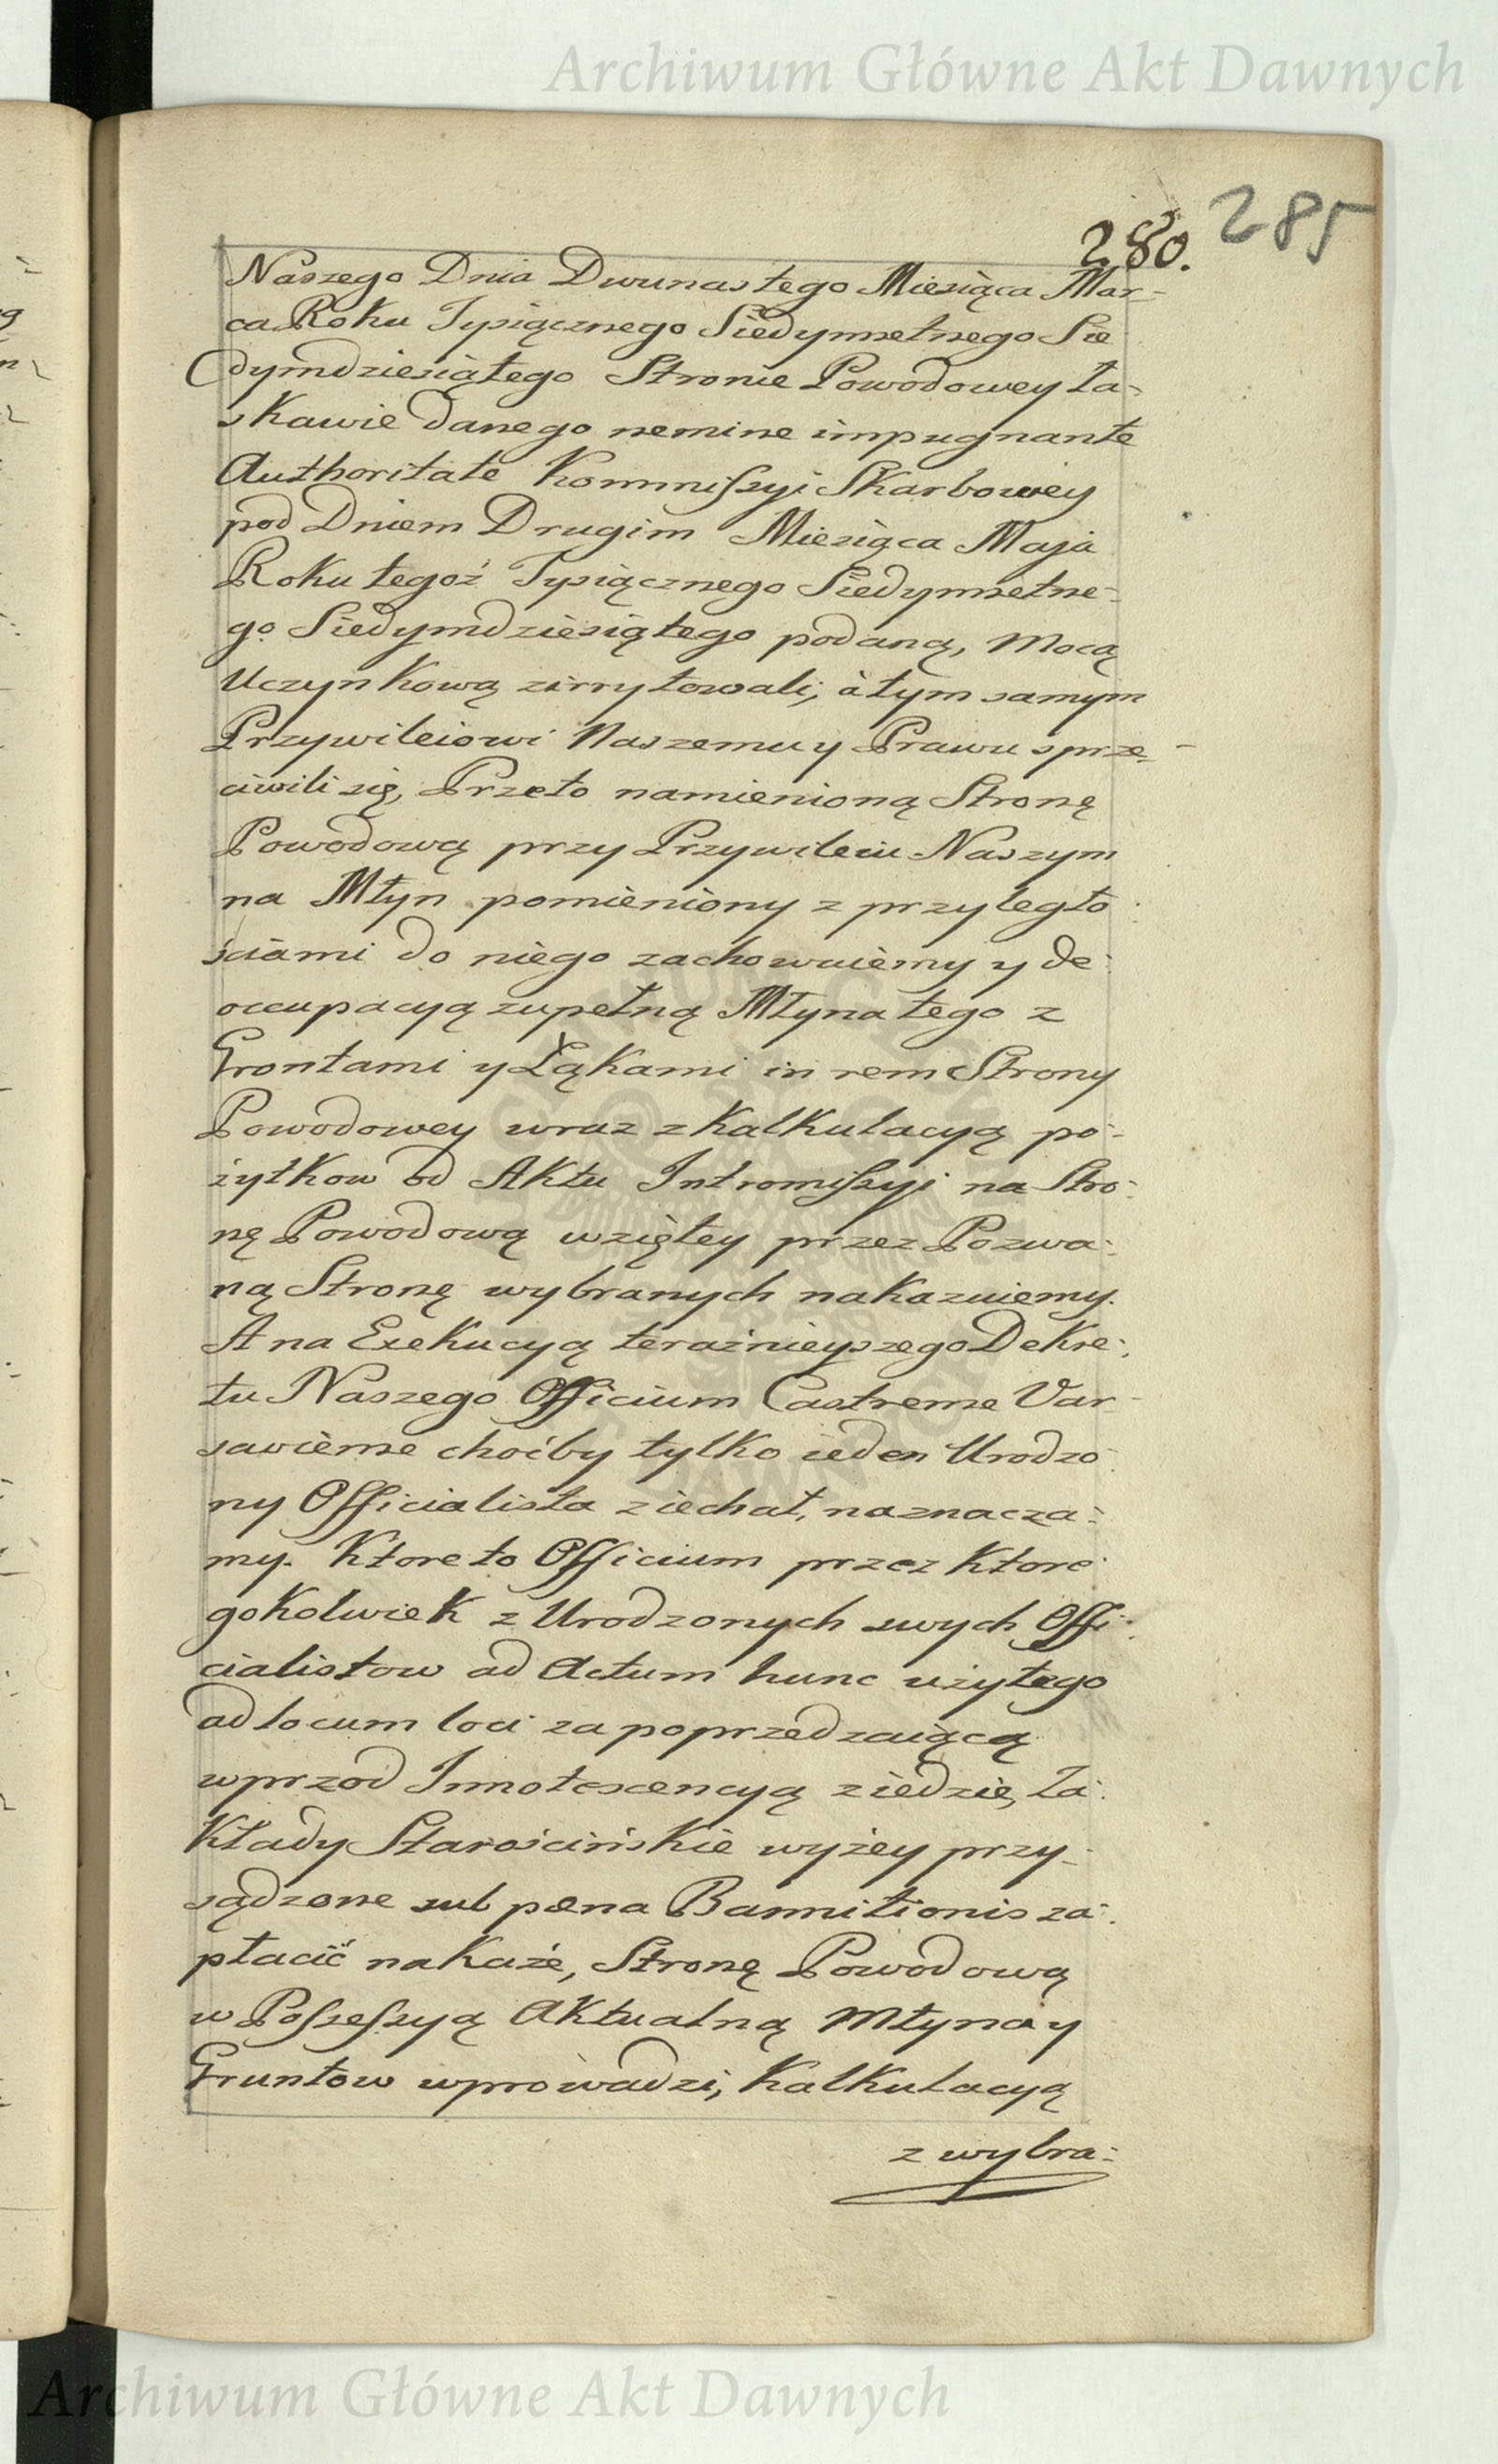 Archiwum Główne Akt Dawnych
280. 285
Naszego Dnia Dwunastego Miesiąca Mar-
ca Roku Tysiącznego Siedymsetnego Sie
dymdziesiątego Stronie Powodowey ła-
skawie danego nemine impugnante
Authoritate Kommissyi Skarbowey
pod Dniem Drugim Miesiąca Maja
Roku tegoż Tysiącznego Siedymsetne-
go Siedymdziesiątego podaną, Mocą
Uczynkową zirrytowali, à tym samym
Przywileiowi Naszemu y Prawu sprze-
ciwili się, Przeto namienioną Stronę
Powodową przy Przywileiu Naszym
na Młyn pomieniony z przyległo
ściami do niego zachowuiemy y de-
occupacyą zupełną Młyna tego z
Grontami y Łąkami in rem Strony
Powodowey wraz z Kalkulacyą po-
żytkow od Aktu Intromissyi na Stro-
nę Powodową wziętey przez Pozwa-
ną Stronę wybranych nakazuiemy.
A na Exekucyą teraźnieyszego Dekre-
tu Naszego Officium Castrense Var-
saviense choćby tylko ieden Urodzo
ny Officialista ziechał, naznacza-
my. Ktore to Officium przez Ktore-
gokolwiek z Urodzonych swych Offi-
cialistow ad Actum hunc użytego
ad locum loci za poprzedzaiącą
wprzod Innotescencyą ziedzie, Za-
kłady Starościńskie wyżey przy-
sądzone sub pœna Bannitionis za-
płacić nakaże, Stronę Powodową
w Possessyą Aktualną Młyna y
Gruntow wprowadzi, Kalkulacyą
z wybra-
Archiwum Główne Akt Dawnych